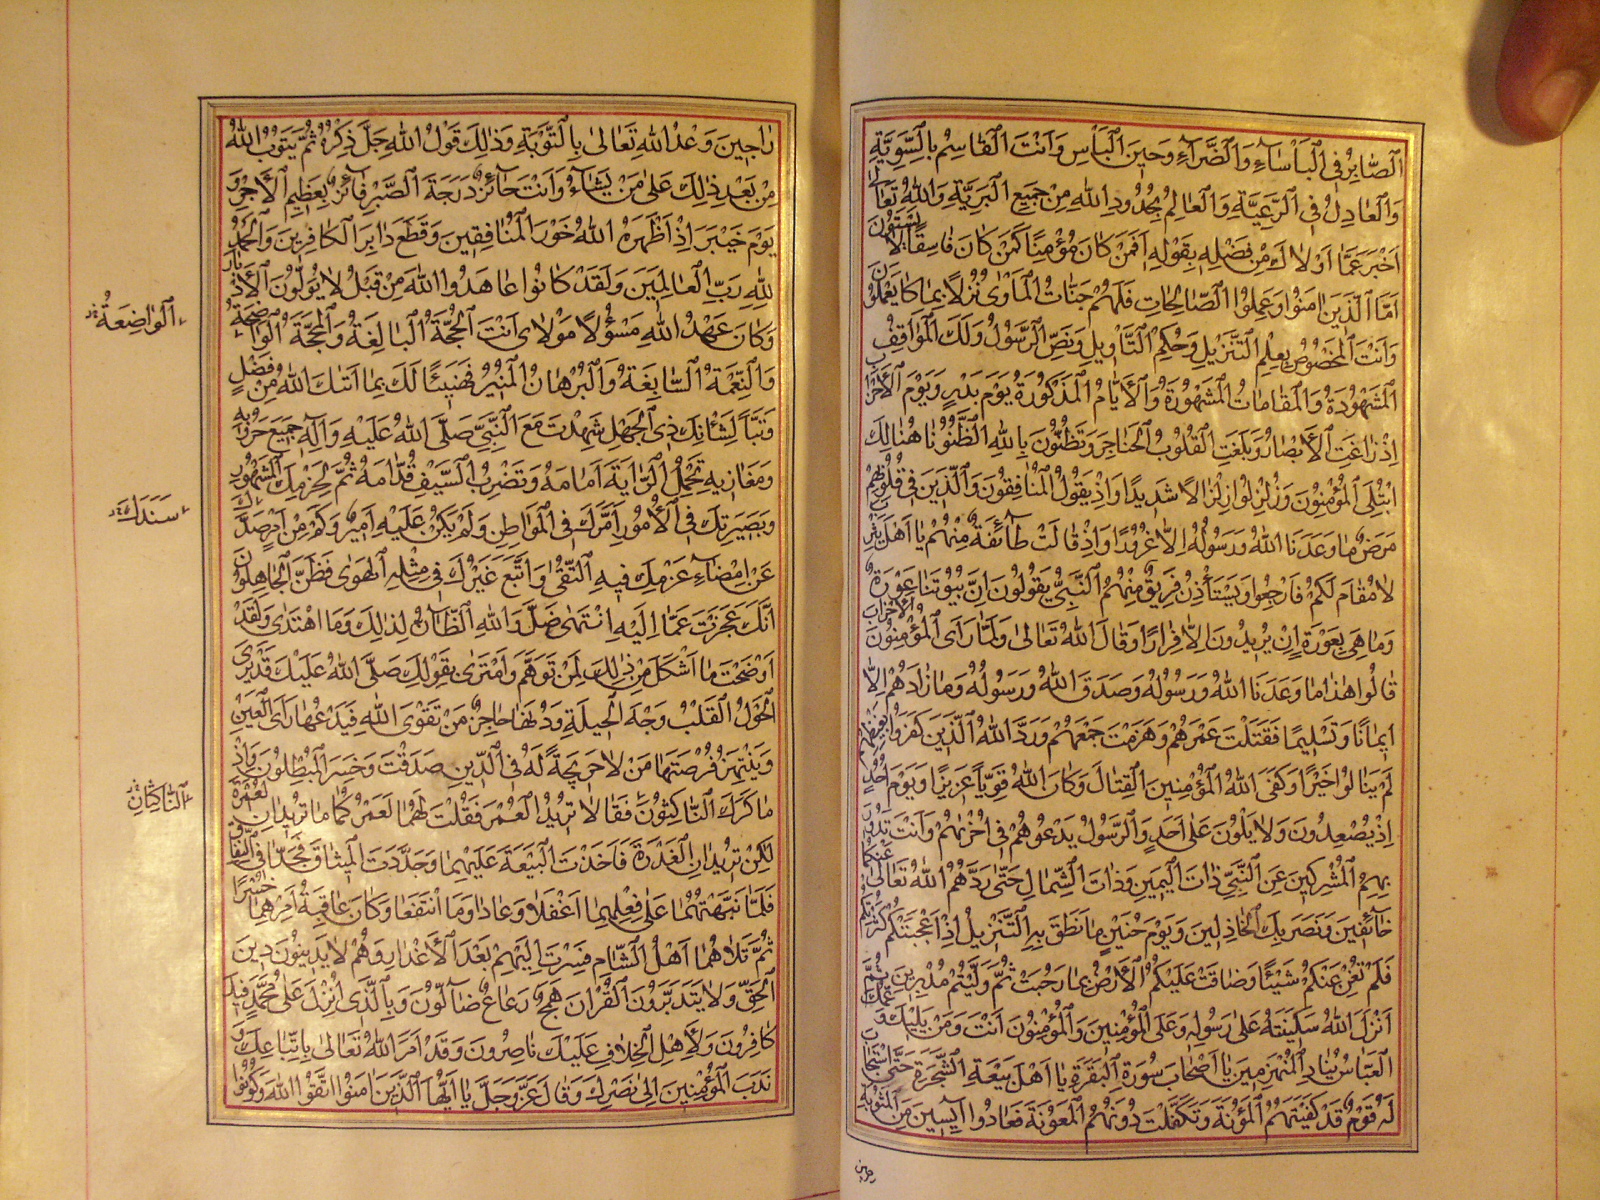 الصَّابِرُ فِي الْبَأْسَاءِ وَالضَّرَّاءِ وَحِينَ الْبَأْسِ وَأَنْتَ الْقَاسِمُ بِالسَّوِيَّةِ
وَالْعَادِلُ فِي الرَّعِيَّةِ وَالْعَالِمُ بِحُدُودِ اللهِ مِنْ جَمِيعِ الْبَرِيَّةِ وَاللهُ تَعَالَى
اَخْبَرَ عَمَّا اَوْلَاكَ مِنْ فَضْلِهِ بِقَوْلِهِ اَفَمَنْ كَانَ مُؤْمِنًا كَمَنْ كَانَ فَاسِقًا لَا يَسْتَوُونَ
اَمَّا الَّذِينَ امَنُوا وَعَمِلُوا الصَّالِحَاتِ فَلَهُمْ جَنَّاتُ الْمَأْوٰى نُزُلًا بِمَا كَانُوا يَعْمَلُونَ
وَاَنْتَ الْمَخْصُوصُ بِعِلْمِ التَّنْزِيلِ وَحُكْمِ التَّأْوِيلِ وَنَصِّ الرَّسُولِ وَلَكَ الْمَوَاقِفُ
الْمَشْهُودَةُ وَالْمَقَامَاتُ الْمَشْهُورَةُ وَالْأَيَّامُ الْمَذْكُورَةُ يَوْمَ بَدْرٍ وَيَوْمَ الْأَحْزَابِ
اِذْ زَاغَتِ الْأَبْصَارُ وَبَلَغَتِ الْقُلُوبُ الْحَنَاجِرَ وَتَظُنُّونَ بِاللهِ الظُّنُونَا هُنَالِكَ
ابْتُلِيَ الْمُؤْمِنُونَ وَزُلْزِلُوا زِلْزَالًا شَدِيدًا وَاِذْ يَقُولُ الْمُنَافِقُونَ وَالَّذِينَ فِي قُلُوبِهِمْ
مَرَضٌ مَا وَعَدَنَا اللهُ وَرَسُولُهُ اِلَّا غُرُورًا وَاِذْ قَالَتْ طَآئِفَةٌ مِنْهُمْ يَا اَهْلَ يَثْرِبَ
لَا مُقَامَ لَكُمْ فَارْجِعُوا وَيَسْتَأْذِنُ فَرِيقٌ مِنْهُمُ النَّبِيَّ يَقُولُونَ اِنَّ بُيُوتَنَا عَوْرَةٌ
وَمَا هِيَ بِعَوْرَةٍ اِنْ يُرِيدُونَ اِلَّا فِرَارًا وَقَالَ اللهُ تَعَالٰى وَلَمَّا رَاَى الْمُؤْمِنُونَ الْأَحْزَابَ
قَالُوا هٰذَا مَا وَعَدَنَا اللهُ وَرَسُولُهُ وَصَدَقَ اللهُ وَرَسُولُهُ وَمَا زَادَهُمْ اِلَّا
اِيمَانًا وَتَسْلِيمًا فَقَتَلْتَ عَمْرَهُمْ وَهَزَمْتَ جَمْعَهُمْ وَرَدَّ اللهُ الَّذِينَ كَفَرُوا بِغَيْظِهِمْ
لَمْ يَنَالُوا خَيْرًا وَكَفَى اللهُ الْمُؤْمِنِينَ الْقِتَالَ وَكَانَ اللهُ قَوِيًّا عَزِيزًا وَيَوْمَ اُحُدٍ
اِذْ يُصْعِدُونَ وَلَا يَلْوُونَ عَلٰى اَحَدٍ وَالرَّسُولُ يَدْعُوهُمْ فِي اُخْرٰيهُمْ وَاَنْتَ تَذُودُ
بِهِمُ الْمُشْرِكِينَ عَنِ النَّبِيِّ ذَاتَ الْيَمِينِ وَذَاتَ الشِّمَالِ حَتّٰى رَدَّهُمُ اللهُ تَعَالٰى عَنْكُمَا
خَائِفِينَ وَنَصَرَ بِكَ الْخَاذِلِينَ وَيَوْمَ حُنَيْنٍ مَا نَطَقَ بِهِ التَّنْزِيلُ اِذْ اَعْجَبَتْكُمْ كَثْرَتُكُمْ
فَلَمْ تُغْنِ عَنْكُمْ شَيْئًا وَضَاقَتْ عَلَيْكُمُ الْأَرْضُ بِمَا رَحُبَتْ ثُمَّ وَلَّيْتُمْ مُدْبِرِينَ ثُمَّ
اَنْزَلَ اللهُ سَكِينَتَهُ عَلٰى رَسُولِهِ وَعَلَى الْمُؤْمِنِينَ وَالْمُؤْمِنُونَ اَنْتَ وَمَنْ يَلِيكَ وَعَمُّكَ
الْعَبَّاسُ يُنَادِ الْمُنْهَزِمِينَ يَا اَصْحَابَ سُورَةِ الْبَقَرَةِ يَا اَهْلَ بَيْعَةِ الشَّجَرَةِ حَتَّى اسْتَجَابَ
لَهُ قَوْمٌ قَدْ كَفَيْتَهُمُ الْمَؤُنَةَ وَتَكَفَّلْتَ دُونَهُمُ الْمَعُونَةَ فَعَادُوا اٰيِسِينَ مِنَ الْمَثُوبَةِ
رَاجِينَ وَعْدَ اللهِ تَعَالٰى بِالتَّوْبَةِ وَذٰلِكَ قَوْلُ اللهِ جَلَّ ذِكْرُهُ ثُمَّ يَتُوبُ اللهُ
مِنْ بَعْدِ ذٰلِكَ عَلٰى مَنْ يَشَاءُ وَاَنْتَ حَائِزٌ دَرَجَةَ الصَّبْرِ فَائِزٌ بِعَظِيمِ الْأَجْرِ وَ
يَوْمَ خَيْبَرَ اِذْ اَظْهَرَ اللهُ خَوَرَ الْمُنَافِقِينَ وَقَطَعَ دَابِرَ الْكَافِرِينَ وَالْحَمْدُ
لِلّٰهِ رَبِّ الْعَالَمِينَ وَلَقَدْ كَانُوا عَاهَدُوا اللهَ مِنْ قَبْلُ لَا يُوَلُّونَ الْأَدْبَارَ
وَكَانَ عَهْدُ اللهِ مَسْؤُلًا مَوْلَايَ اَنْتَ الْحُجَّةُ الْبَالِغَةُ وَالْمَحَجَّةُ الْوَاضِحَةُ
وَالنِّعْمَةُ السَّابِغَةُ وَالْبُرْهَانُ الْمُنِيرُ فَهَنِيئًا لَكَ بِمَا اٰتَاكَ اللهُ مِنْ فَضْلٍ
وَتَبًّا لِشَانِئِكَ ذِي الْجَهْلِ شَهِدْتَ مَعَ النَّبِيِّ صَلَّى اللهُ عَلَيْهِ وَاٰلِهِ جَمِيعَ حُرُوبِهِ
وَمَغَازِيهِ تَحْمِلُ الرَّايَةَ اَمَامَهُ وَتَضْرِبُ السَّيْفِ قُدَّامَهُ ثُمَّ لِحَزْمِكَ الْمَشْهُورِ
وَبَصِيرَتِكَ فِي الْأُمُورِ اَمَّرَكَ فِي الْمَوَاطِنِ وَلَمْ يَكُنْ عَلَيْهِ اَمِيرٌ وَكَمْ مِنْ اَمْرٍ صَدَّكَ
عَنْ اِمْضَاءِ عَزْمِكَ فِيهِ التُّقٰى وَاتَّبَعَ غَيْرُكَ فِي مِثْلِهِ الْهَوٰى فَظَنَّ الْجَاهِلُونَ
اَنَّكَ عَجَزْتَ عَمَّا اِلَيْهِ انْتَهٰى ضَلَّ وَاللهِ الظَّانُّ لِذٰلِكَ وَمَا اهْتَدٰى وَلَقَدْ
اَوْضَحْتَ مَا اَشْكَلَ مِنْ ذٰلِكَ لِمَنْ تَوَهَّمَ وَامْتَرٰى بِقَوْلِكَ صَلَّى اللهُ عَلَيْكَ قَدْ يَرَى
الْحُوَّلُ الْقُلَّبُ وَجْهَ الْحِيلَةِ وَدُونَهَا حَاجِزٌ مِنْ تَقْوَى اللهِ فَيَدَعُهَا رَأْيَ الْعَيْنِ
وَيَنْتَهِزُ فُرْصَتَهَا مَنْ لَا حَرِيجَةَ لَهُ فِي الدِّينِ صَدَقْتَ وَخَسِرَ الْمُبْطِلُونَ وَاِذْ
مَاكَرَكَ النَّاكِثُونَ فَقَالَا نُرِيدُ الْعُمْرَةَ فَقُلْتَ لَهُمَا لَعَمْرُكُمَا مَا تُرِيدَانِ الْعُمْرَةَ
لٰكِنْ تُرِيدَانِ الْغَدْرَةَ فَاَخَذْتَ الْبَيْعَةَ عَلَيْهِمَا وَجَدَّدْتَ الْمِيثَاقَ فَجَدَّا فِي النِّفَاقِ
فَلَمَّا نَبَّهْتَهُمَا عَلٰى فِعْلِهِمَا اَغْفَلَا وَعَادَا وَمَا انْتَفَعَا وَكَانَ عَاقِبَةُ اَمْرِهِمَا خُسْرًا
ثُمَّ تَلَاهُمَا اَهْلُ الشَّامِ فَسِرْتَ اِلَيْهِمْ بَعْدَ الْأَعْذَارِ وَهُمْ لَا يَدِينُونَ دِينَ
الْحَقِّ وَلَا يَتَدَبَّرُونَ الْقُرْاٰنَ هَمَجٌ رَعَاعٌ ضَالُّونَ وَبِالَّذِي اُنْزِلَ عَلٰى مُحَمَّدٍ فِيكَ
كَافِرُونَ وَلِأَهْلِ الْخِلَافِ عَلَيْكَ نَاصِرُونَ وَقَدْ اَمَرَ اللهُ تَعَالٰى بِاتِّبَاعِكَ وَ
نَدَبَ الْمُؤْمِنِينَ اِلٰى نَصْرِكَ وَقَالَ عَزَّ وَجَلَّ يَا اَيُّهَا الَّذِينَ امَنُوا اتَّقُوا اللهَ وَكُونُوا
اَلْوَاضِعَةُ
سَنَدَكَ
اَلنَّاكِثَانِ